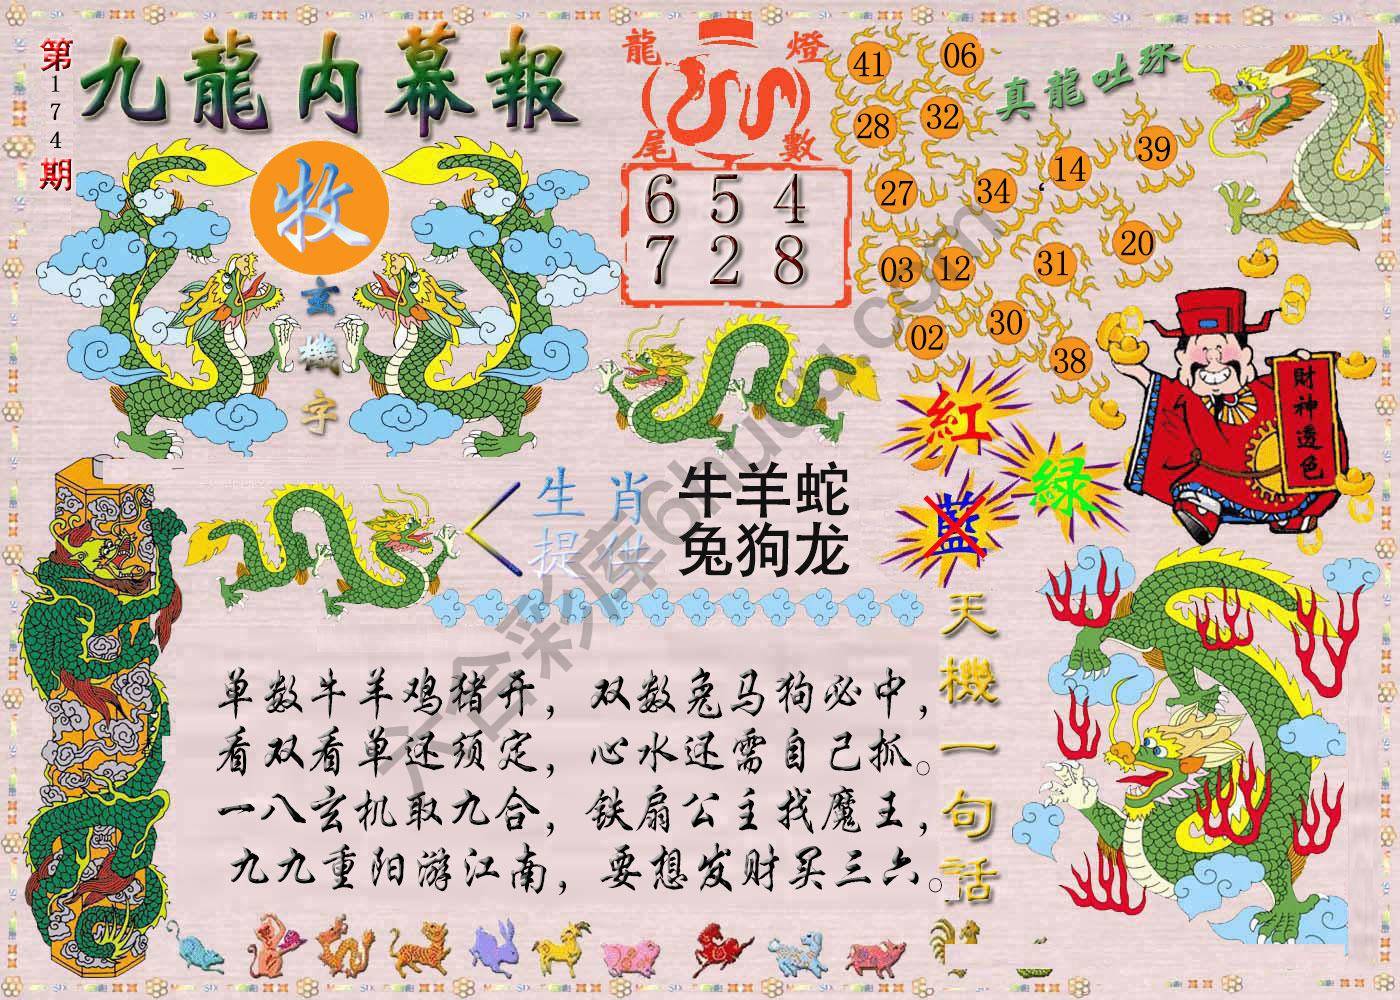 第174期
九龍内幕報
牧
玄機字
龍燈尾數
6 5 4
7 2 8
41 06
28 32
27 34 14 39
03 12 31 20
02 30 38
真龍吐珠
財神透色
紅
綠
藍
生肖
提供
牛羊蛇
兔狗龙
单数牛羊鸡猪开，双数兔马狗必中，
看双看单还须定，心水还需自己抓。
一八玄机取九合，铁扇公主找魔王，
九九重阳游江南，要想发财买三六。
天機一句話
六合彩库6huuu.com